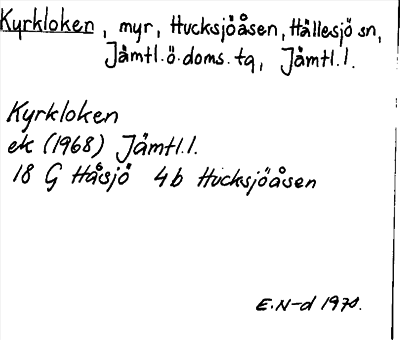 Kyrkloken, myr, Hucksjöåsen, Hällesjö sn,
Jämtl.ö.doms.tg, Jämtl.l.
Kyrkloken
ek (1968) Jämtl.l.
18 G Håsjö 4b Hucksjöåsen
E.N-d